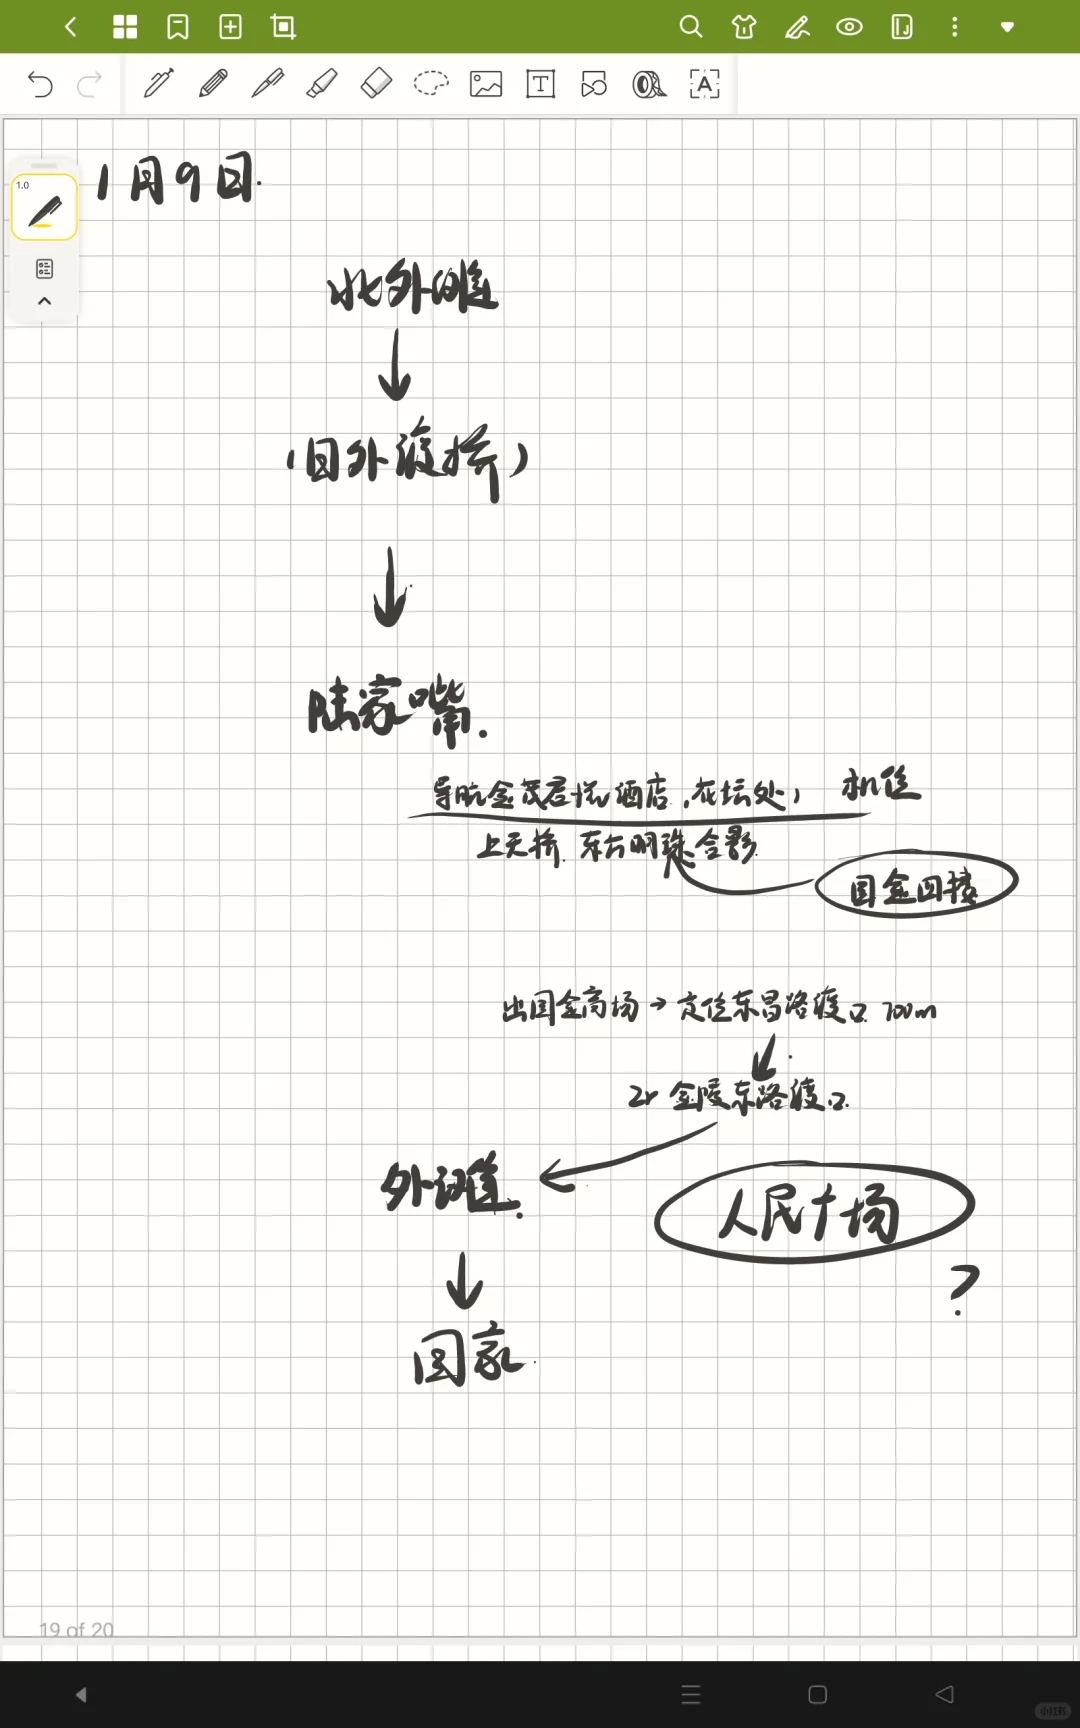 1.0
1月9日.
北外滩
↓
(旧外渡桥)
↓
陆家嘴.
导航金茂君悦酒店,花坛处, 机位
上天桥.东方明珠合影
国金四楼
出国金商场→定位东昌路渡口 700m
↓
2r 金陵东路渡口.
外滩.
人民广场
?
↓
回家.
19 of 20
小红书